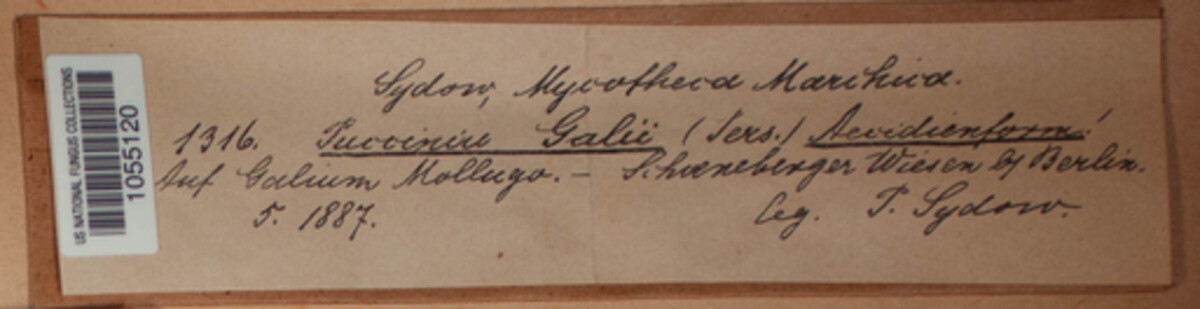 US NATIONAL FUNGUS COLLECTIONS
1055120
Sydow, Mycotheca Marchica.
1316. Puccinia Galii (Pers.) Aecidienform!
Auf Galium Mollugo. — Schoeneberger Wiesen b/ Berlin.
5. 1887. leg. P. Sydow.